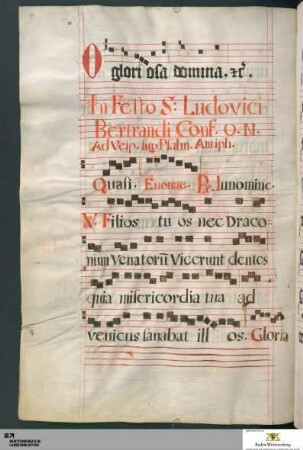 O
glori osa domina, ꝛc̃.
In Festo S: Ludovici
Bertrandi Conf. O. N.
Ad Vesp. sup Psalm. Antiph.
Quasi. Euouae. R. In nomine.
V. Filios tu os nec Draco=
num Venatorū Vicerunt dentes
quia misericordia tua ad
veniens sanabat ill os. Gloria
Baden-Württemberg